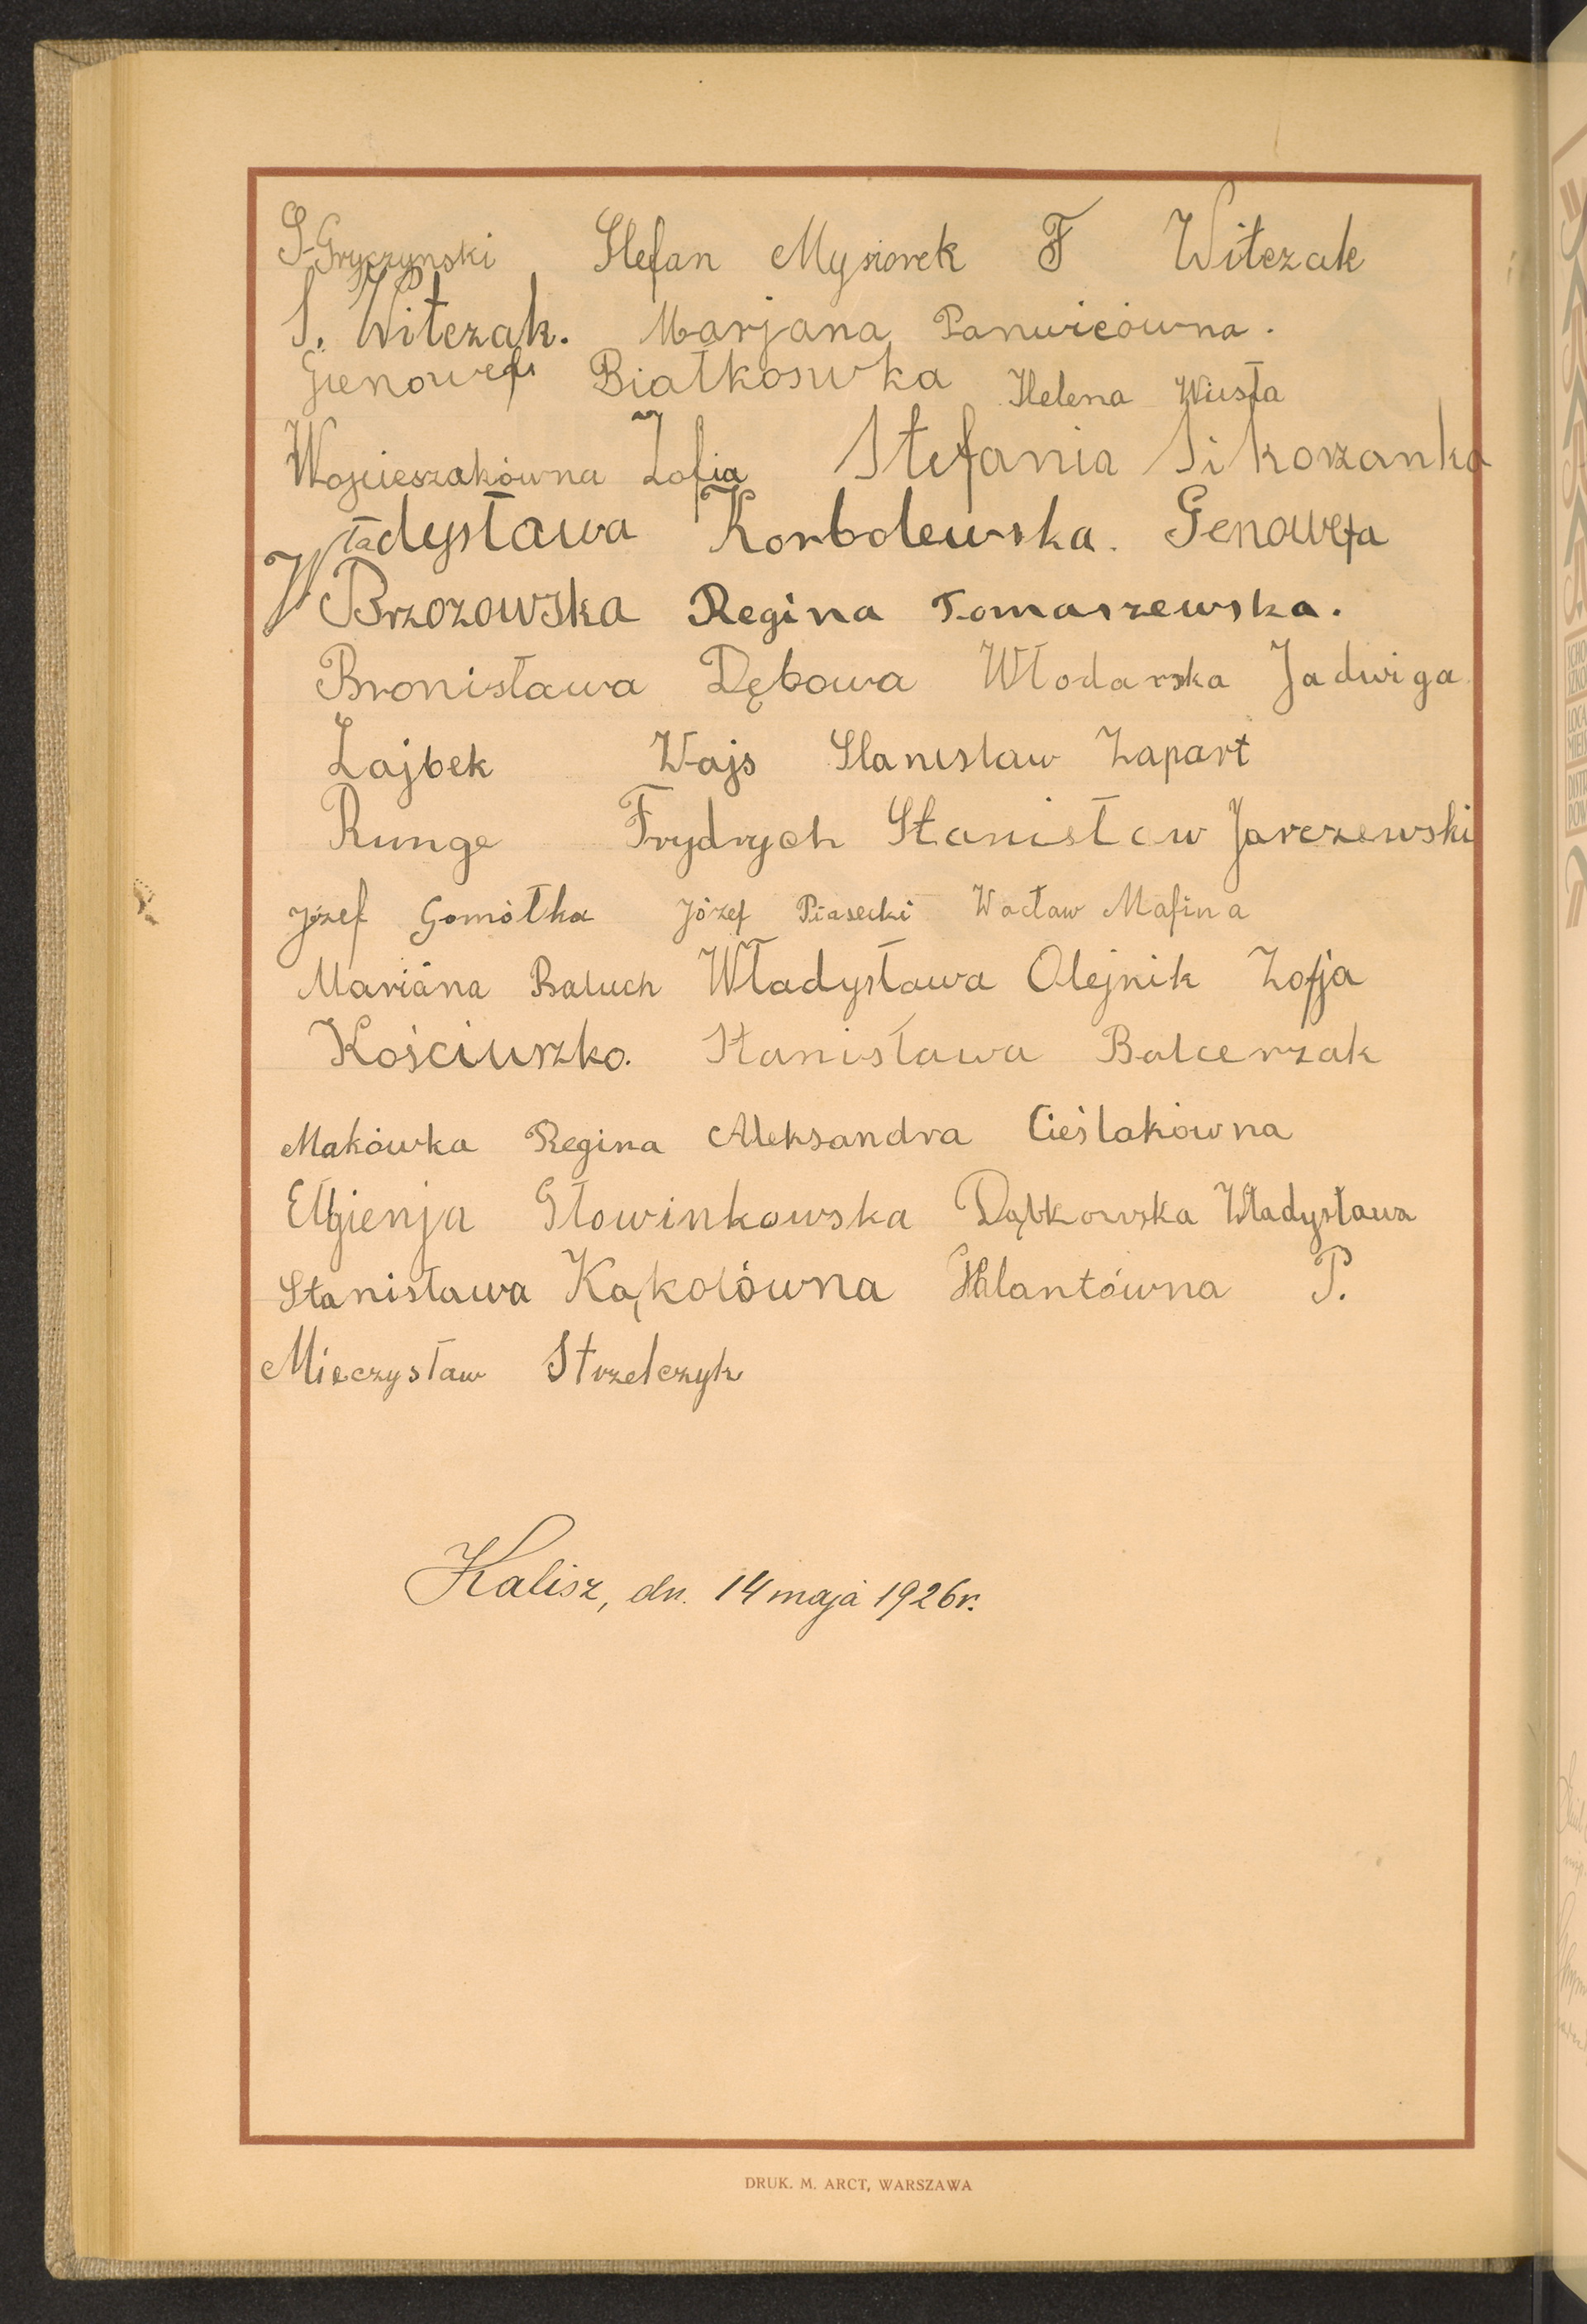 S. Gryczynski Stefan Mysiorek F Witczak
S. Witczak. Marjana Panwicówna.
Gienowefa Białkoswka Helena Wiusła
Wojcieszakówna Zofia Stefania Sikorzanka
Władysława Korbolewska. Genowefa
Brzozowska Regina Tomaszewska.
Bronisława Dębowa Włodarska Jadwiga
Zajbek Wajs Stanisław Zapart
Runge Frydrych Stanisław Jarczewski
Józef Gomółka Józef Piasecki Wacław Mafina
Mariana Baluch Władysława Olejnik Zofja
Kościuszko. Stanisława Balcerzak
Makówka Regina Aleksandra Cieślakówna
Eugienja Głowinkowska Dąbkowska Władysława
Stanisława Kąkolówna P.
Mieczysław Strzelczyk
Kalisz, dn. 14 maja 1926 r.
DRUK. M. ARCT, WARSZAWA